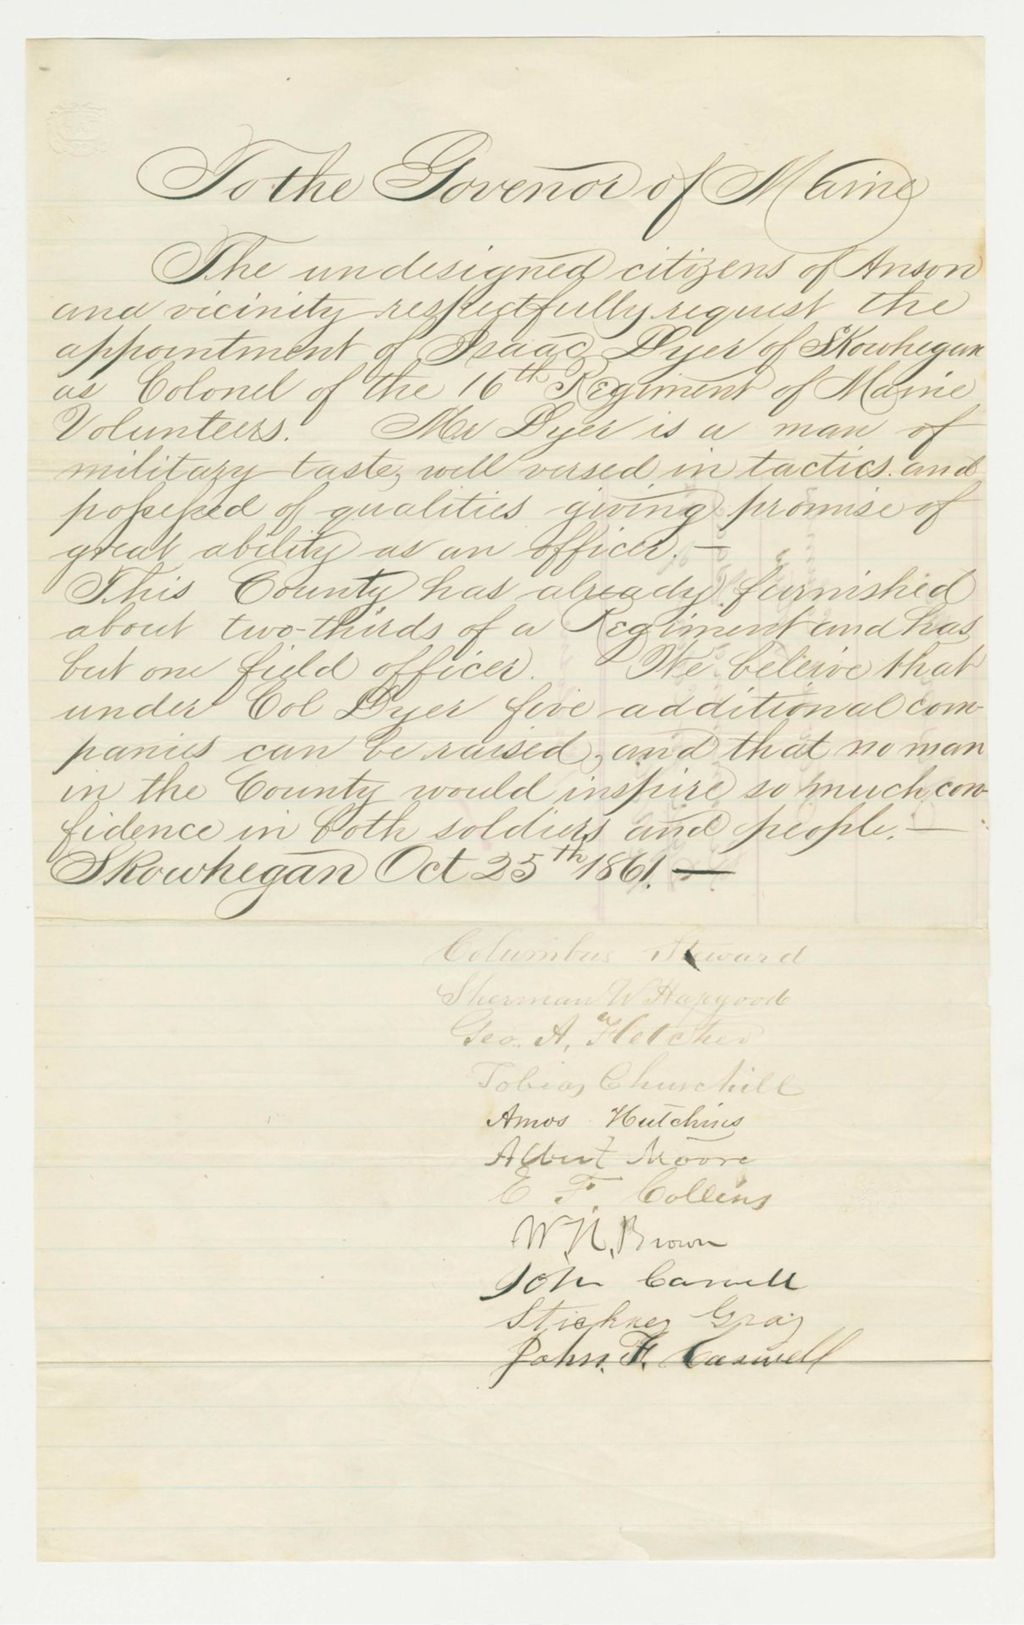 To the Govenor of Maine
The undesigned citizens of Anson
and vicinity respectfully request the
appointment of Isaac Dyer of Skowhegan
as Colonel of the 16th Regiment of Maine
Volunteers. Mr Dyer is a man of
military taste, well versed in tactics and
possessed of qualities giving promise of
great ability as an officer. —
This County has already furnished
about two-thirds of a Regiment and has
but one field officer. We beleive that
under Col Dyer five additional com-
panies can be raised, and that no man
in the County would inspire so much con-
fidence in both soldiers and people. —
Skowhegan Oct 25th 1861. —
Columbus Steward
Sherman W Hapgood
Geo. A. Fletcher
Tobias Churchill
Amos Hutchins
Albert Moore
E F. Collins
W. N. Brown
John Carvell
Stickney Gray
John. F. Caswell